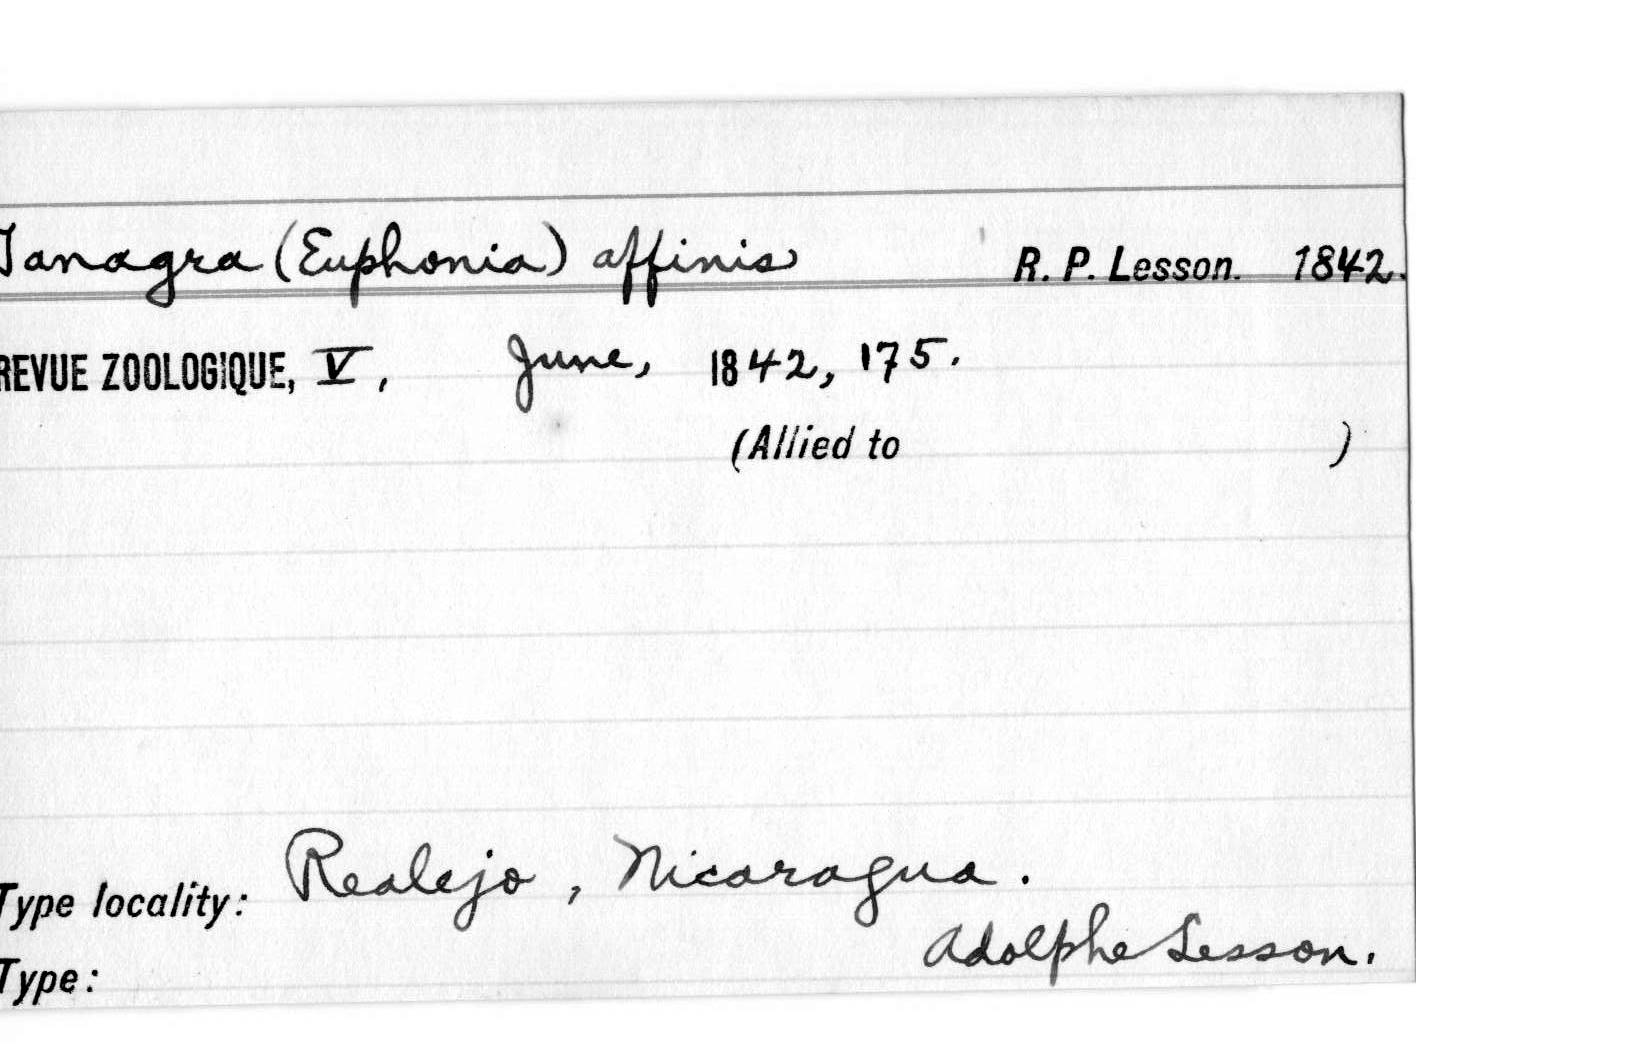 Tanagra (Euphonia) affinis R. P. Lesson. 1842.
REVUE ZOOLOGIQUE, V, June, 1842, 175.
(Allied to )
Type locality: Realejo, Nicaragua.
Adolphe Lesson.
Type: